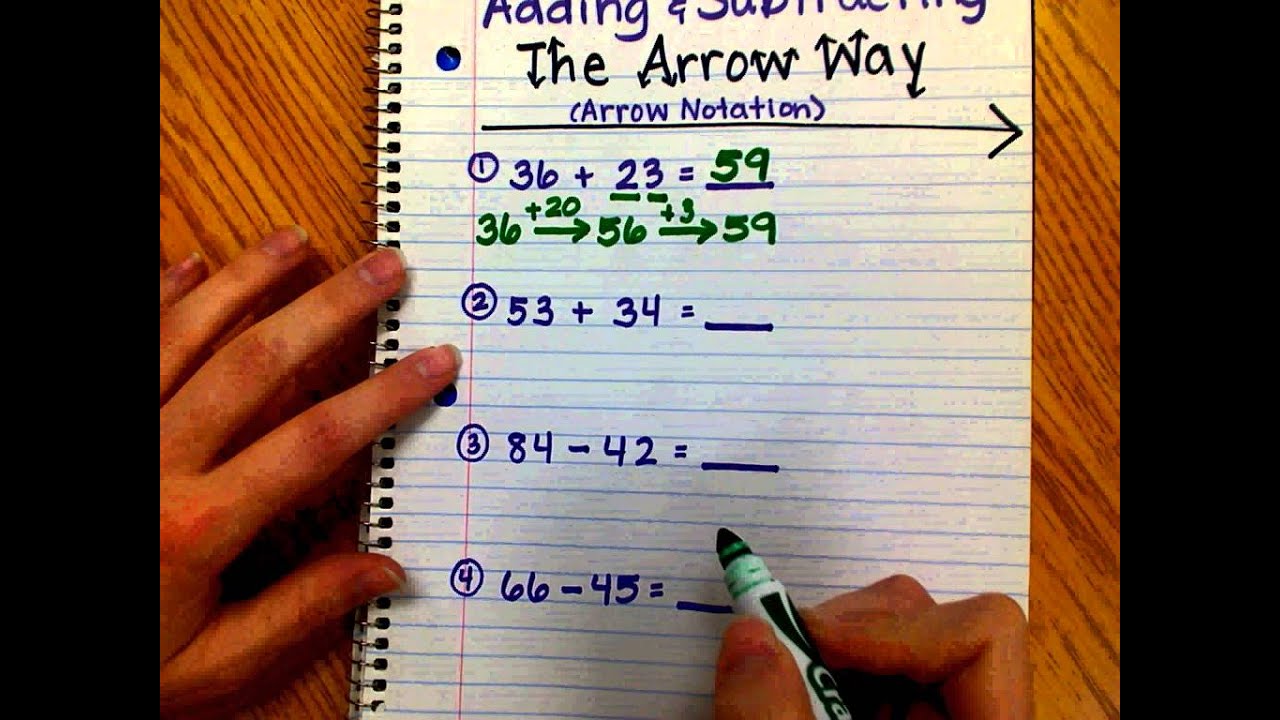 Adding & Subtracting
The Arrow Way
(Arrow Notation)
① 36 + 23 = 59
+20 +3
36 → 56 → 59
② 53 + 34 = ___
③ 84 - 42 = ___
④ 66 - 45 = ___
Cra